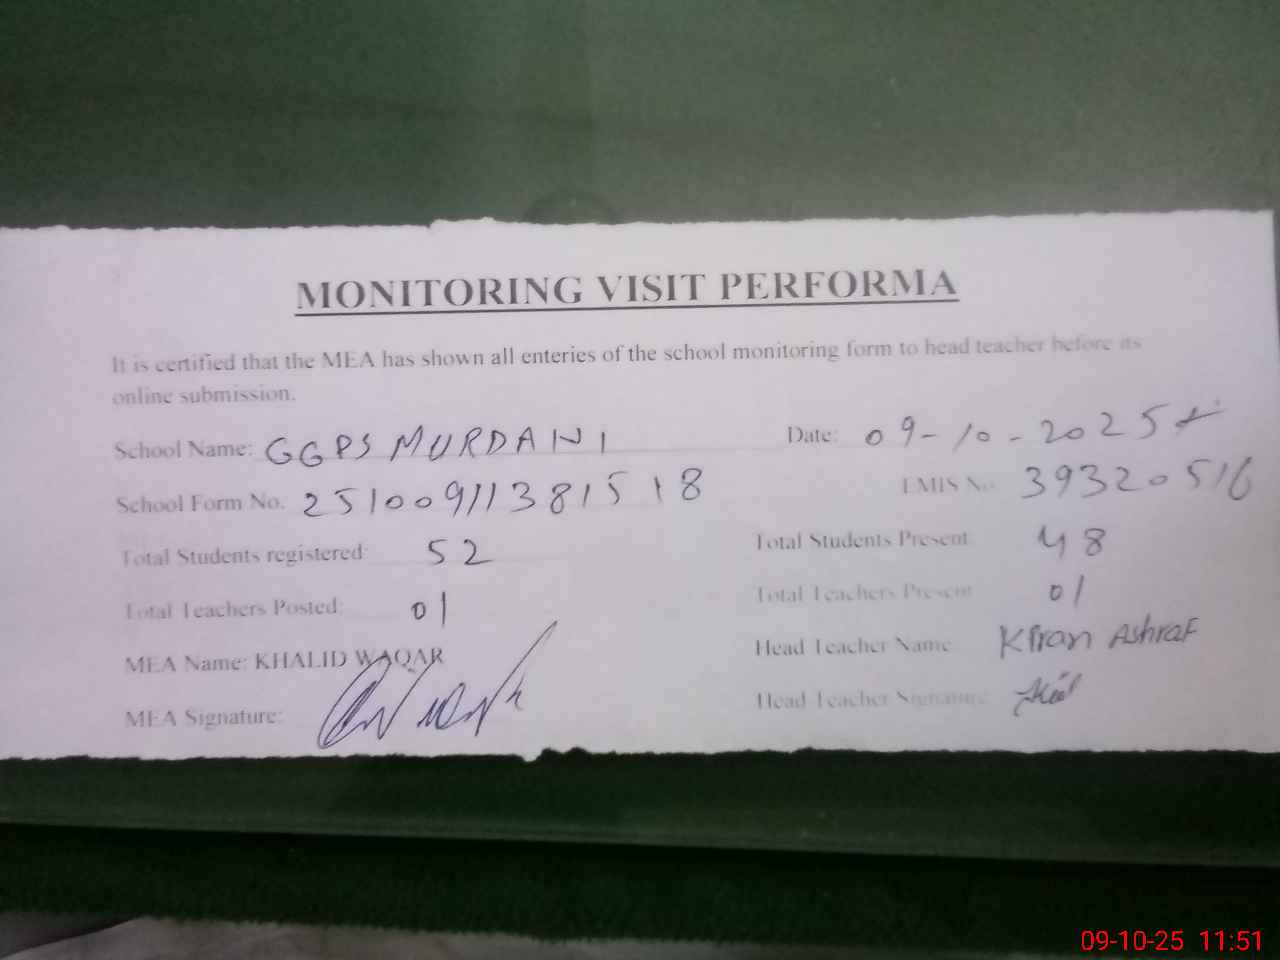 MONITORING VISIT PERFORMA
It is certified that the MEA has shown all enteries of the school monitoring form to head teacher before its
online submission.
School Name: GGPS MURDANI Date: 09-10-2025
School Form No. 251009113815 18 EMIS No. 39320516
Total Students registered: 52 Total Students Present 48
Total Teachers Posted: 01 Total Teachers Present 01
MEA Name: KHALID WAQAR Head Teacher Name Kiran Ashraf
MEA Signature: Head Teacher Signature
09-10-25 11:51